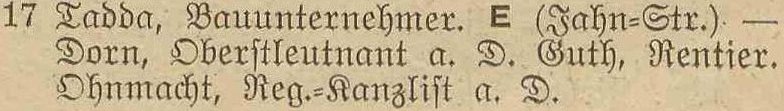 17 Tadda, Bauunternehmer. E (Jahn-Str.) —
Dorn, Oberstleutnant a. D. Guth, Rentier.
Ohnmacht, Reg.-Kanzlist a. D.